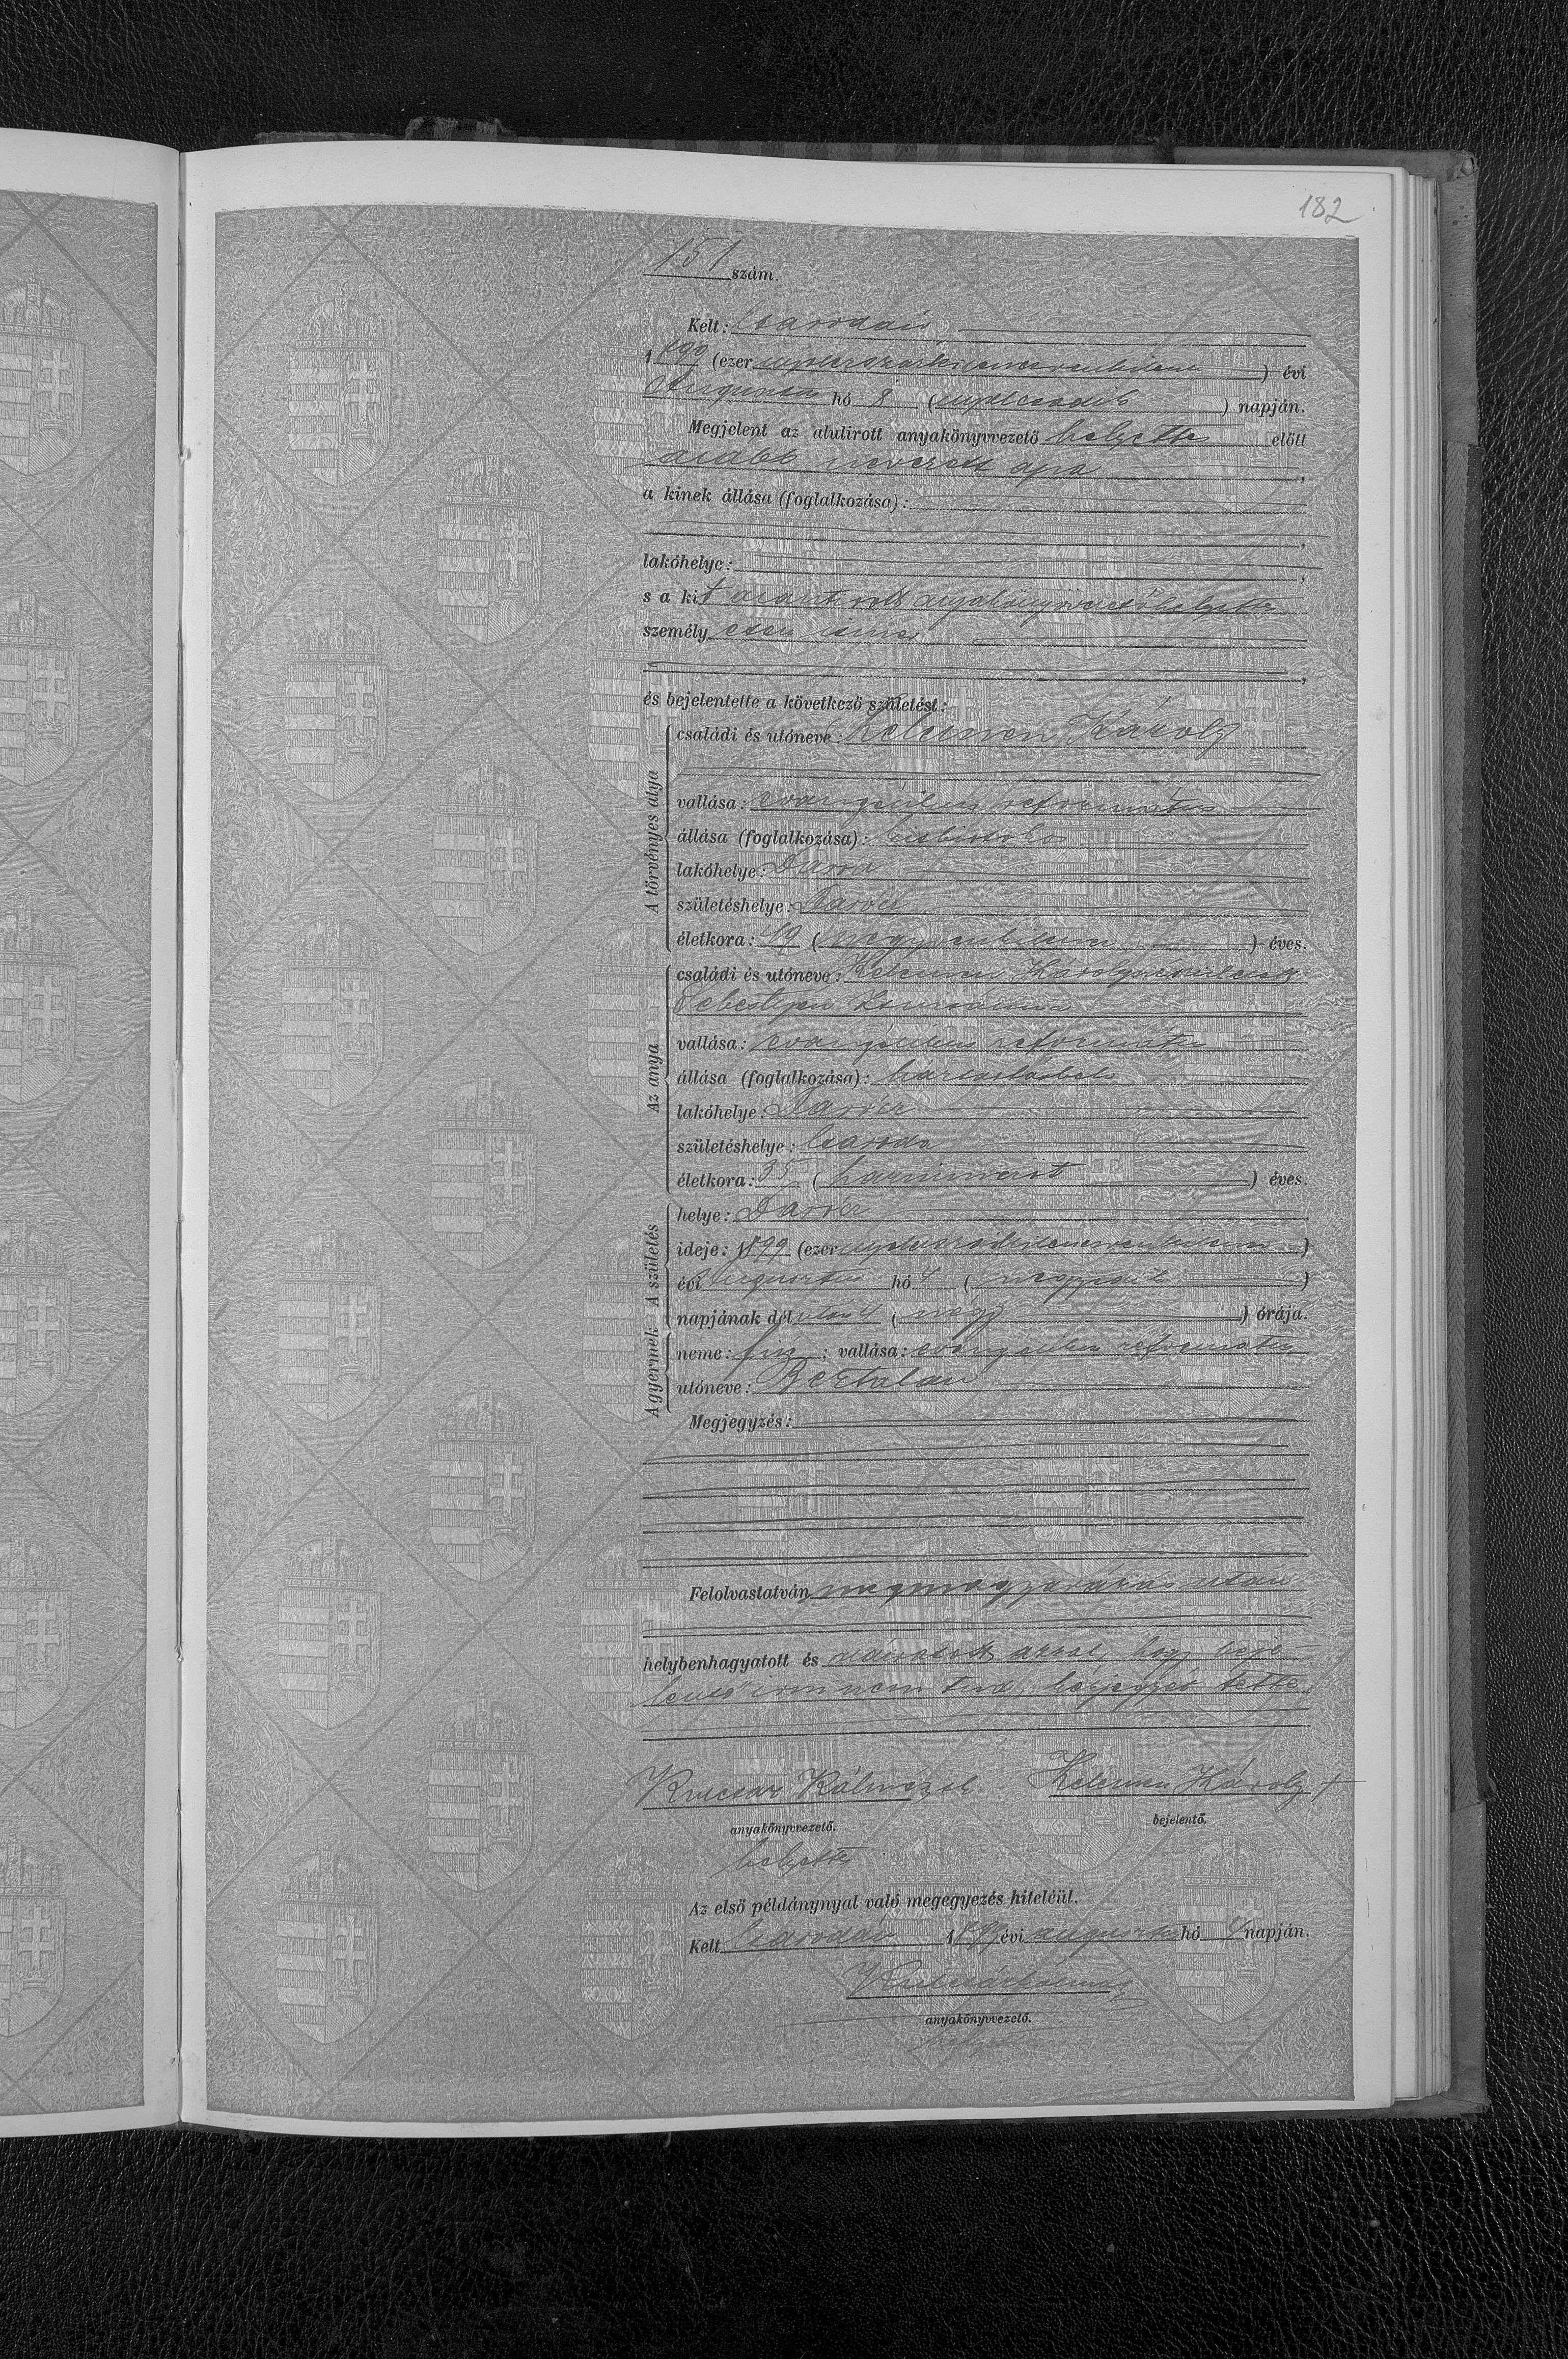 182
151 szám.
Kelt: Csarodán
1899 (ezer nyolczszázkilenczvenkilencz) évi
Augusztus hó 8 (nyolczadik) napján.
Megjelent az alulirott anyakönyvvezető helyettes előtt
alább nevezett apa,
a kinek állása (foglalkozása):
,
lakóhelye: ,
s a kit alantirott anyakönyvvezetőhelyettes
személyesen ismer
,
és bejelentette a következő születést:
A törvényes atya
családi és utóneve: Kelemen Károly
vallása: evangélikus református
állása (foglalkozása): kisbirtokos
lakóhelye: Darócz
születéshelye: Darócz
életkora: 49 (negyvenkilencz) éves.
Az anya
családi és utóneve: Kelemen Károlyné született
Sebestyen Zsuzsánna
vallása: evangélikus református
állása (foglalkozása): háztartásbeli
lakóhelye: Darócz
születéshelye: Csaroda
életkora: 35 (harminczöt) éves.
A születés
helye: Darócz
ideje: 1899 (ezer nyolczszázkilenczvenkilencz)
évi Augusztus hó 4 (negyedik)
napjának délután 4 (négy) órája.
A gyermek
neme: fiu; vallása: evangélikus református
utóneve: Bertalan
Megjegyzés:
Felolvastatván, megmagyarázás után
helybenhagyatott és aláiratott azzal, hogy beje-
lentő irni nem tud, kézjegyét tette
Kulcsár Kálmán Kelemen Károly +
anyakönyvvezető. bejelentő.
helyettes
Az első példánynyal való megegyezés hiteléül.
Kelt Csarodán 1899 évi augusztus hó napján.
Kulcsár Kálmán
anyakönyvvezető.
helyettes